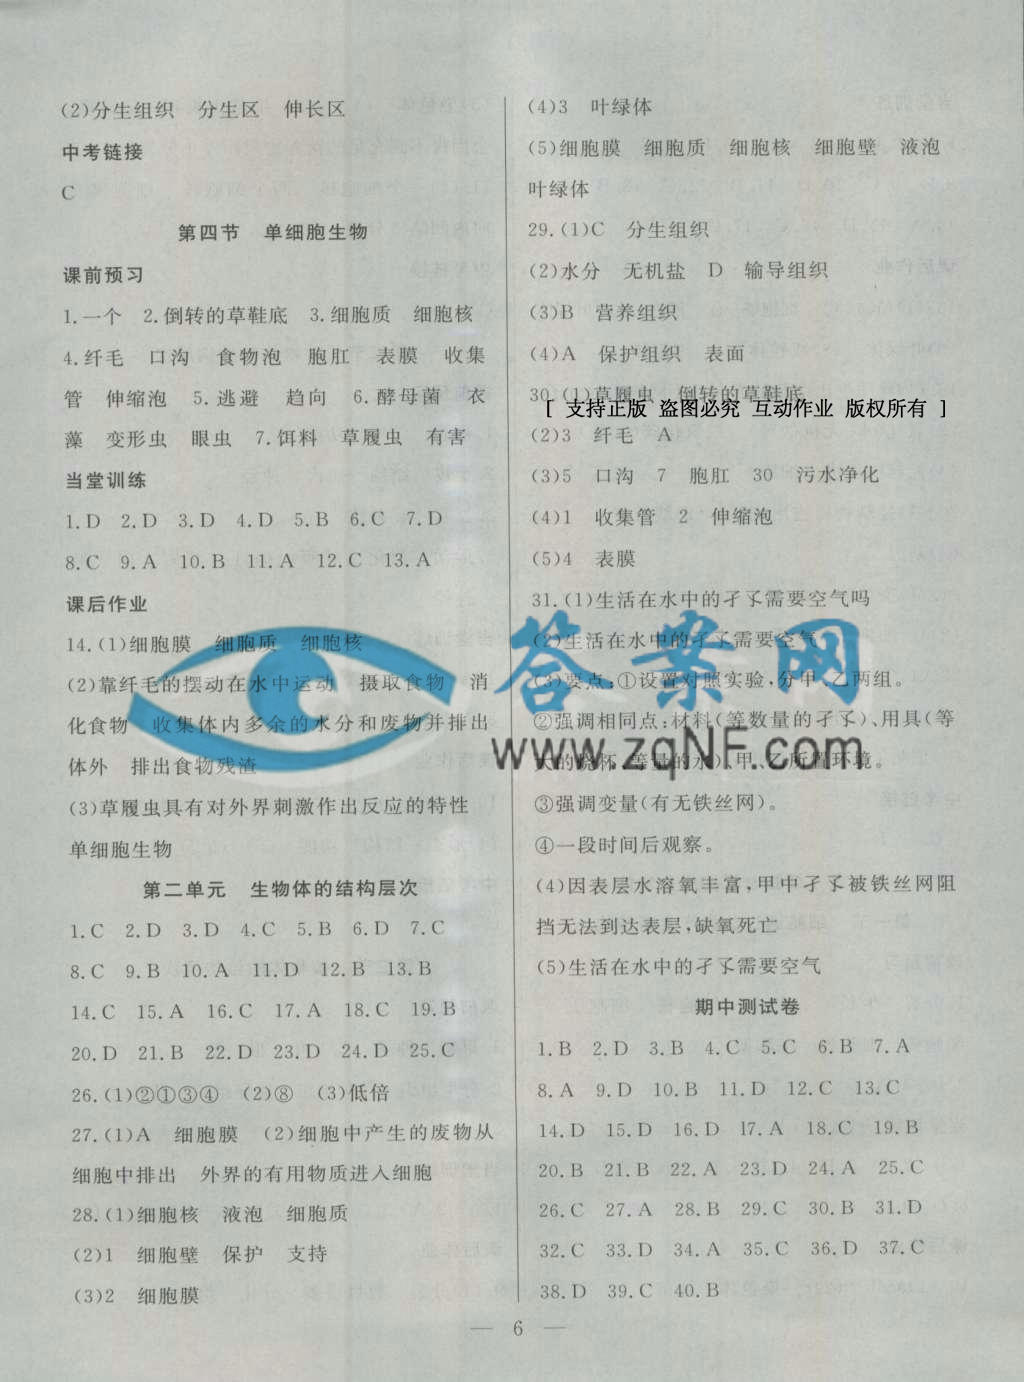 (2)分生组织 分生区 伸长区
中考链接
C
第四节 单细胞生物
课前预习
1.一个 2.倒转的草鞋底 3.细胞质 细胞核
4.纤毛 口沟 食物泡 胞肛 表膜 收集
管 伸缩泡 5.逃避 趋向 6.酵母菌 衣
藻 变形虫 眼虫 7.饵料 草履虫 有害
当堂训练
1.D 2.D 3.D 4.D 5.B 6.C 7.D
8.C 9.A 10.B 11.A 12.C 13.A
课后作业
14.(1)细胞膜 细胞质 细胞核
(2)靠纤毛的摆动在水中运动 摄取食物 消
化食物 收集体内多余的水分和废物并排出
体外 排出食物残渣
(3)草履虫具有对外界刺激作出反应的特性
单细胞生物
第二单元 生物体的结构层次
1.C 2.D 3.D 4.C 5.D 6.D 7.C
8.C 9.B 10.A 11.D 12.B 13.B
14.C 15.A 16.C 17.A 18.C 19.B
20.D 21.B 22.D 23.D 24.D 25.C
26.(1)②①③④ (2)⑧ (3)低倍
27.(1)A 细胞膜 (2)细胞中产生的废物从
细胞中排出 外界的有用物质进入细胞
28.(1)细胞核 液泡 细胞质
(2)1 细胞壁 保护 支持
(3)2 细胞膜
(4)3 叶绿体
(5)细胞膜 细胞质 细胞核 细胞壁 液泡
叶绿体
29.(1)C 分生组织
(2)水分 无机盐 D 输导组织
(3)B 营养组织
(4)A 保护组织 表面
30.(1)草履虫 倒转的草鞋底
[ 支持正版 盗图必究 互动作业 版权所有 ]
(2)3 纤毛 A
(3)5 口沟 7 胞肛 30 污水净化
(4)1 收集管 2 伸缩泡
(5)4 表膜
31.(1)生活在水中的孑孓需要空气吗
(2)生活在水中的孑孓需要空气
(3)要点:①设置对照实验,分甲、乙两组。
②强调相同点:材料(等数量的孑孓)、用具(等
大的烧杯、等量的水)、甲、乙所置环境。
③强调变量(有无铁丝网)。
④一段时间后观察。
(4)因表层水溶氧丰富,甲中孑孓被铁丝网阻
挡无法到达表层,缺氧死亡
(5)生活在水中的孑孓需要空气
期中测试卷
1.B 2.D 3.B 4.C 5.C 6.B 7.A
8.A 9.D 10.B 11.D 12.C 13.C
14.D 15.D 16.D 17.A 18.C 19.B
20.B 21.B 22.A 23.D 24.A 25.C
26.C 27.A 28.B 29.C 30.B 31.D
32.C 33.D 34.A 35.D 36.D 37.C
38.D 39.C 40.B
答案网
www.zqNF.com
— 6 —